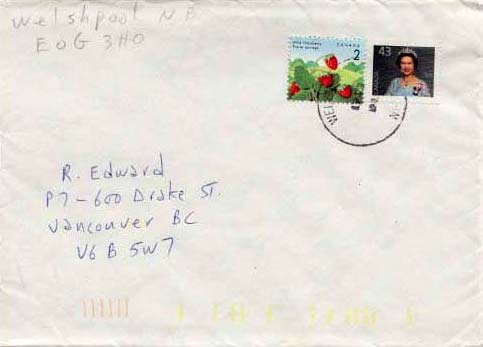 Welshpool NB
E0G 3H0
wild strawberry
fraise sauvage
CANADA
2
43
R. Edward
P7-600 Drake ST.
Vancouver BC
V6B 5W7